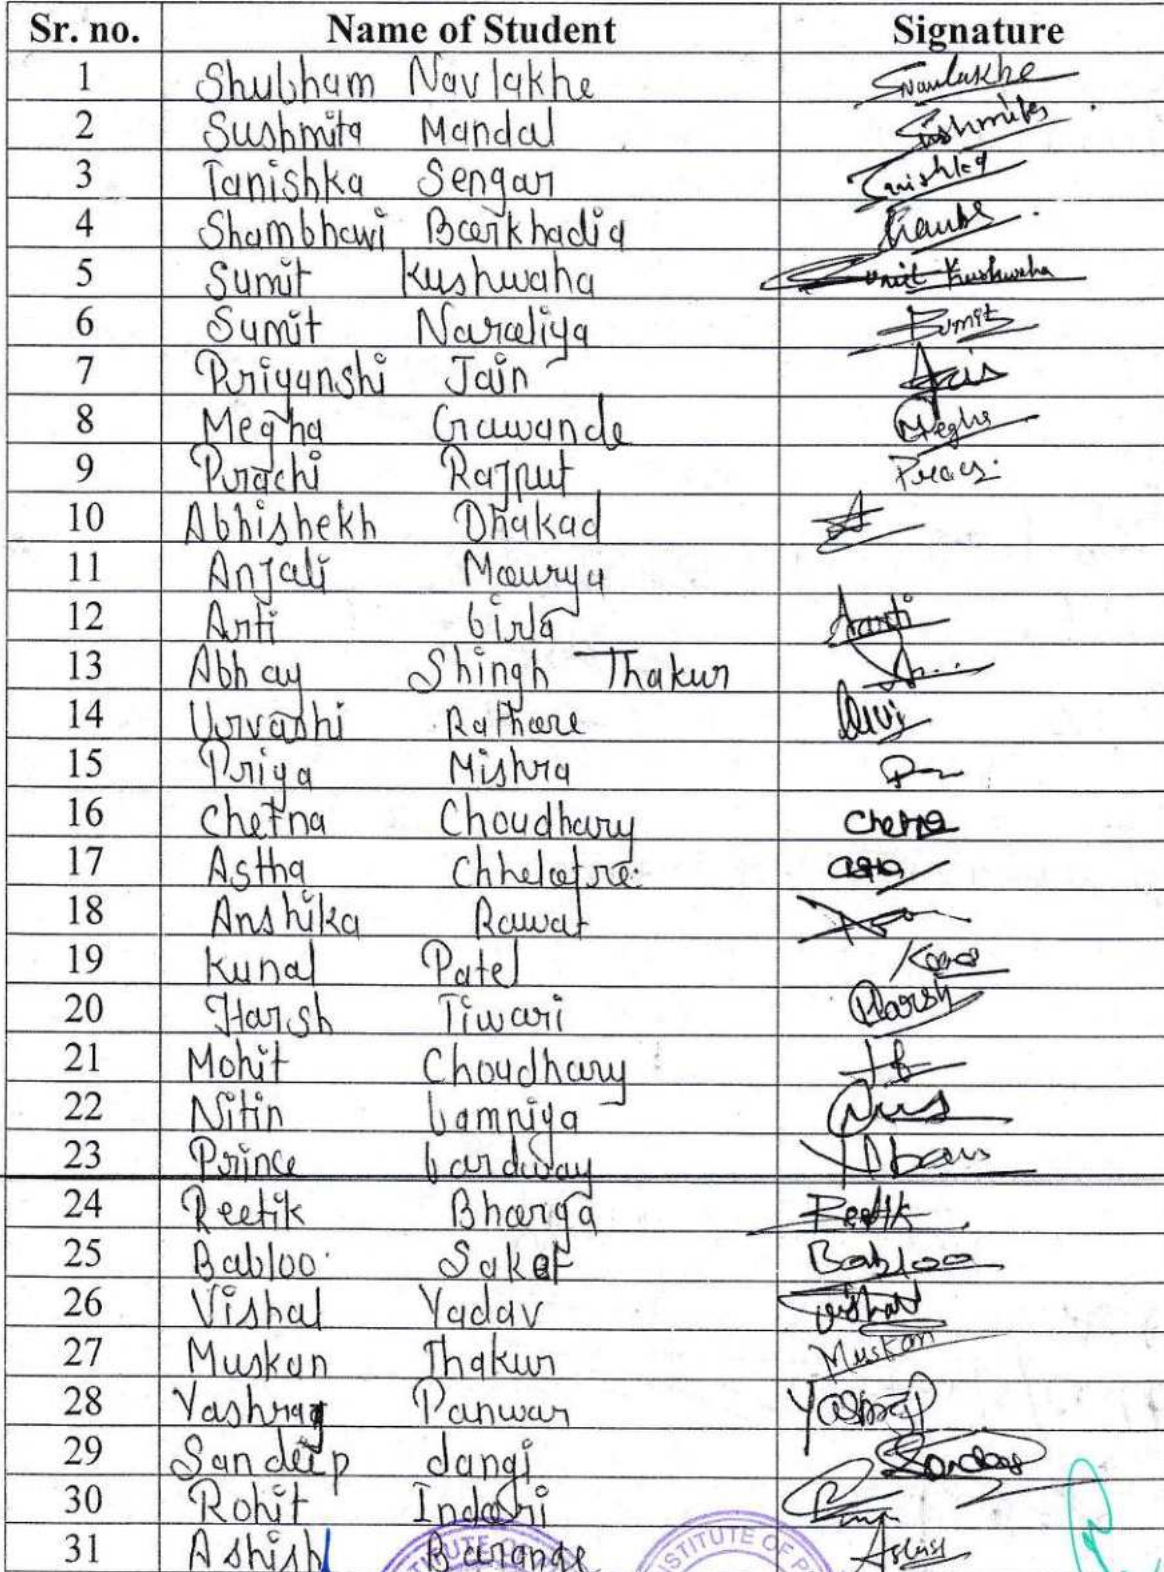 Sr. no. Name of Student Signature
1 Shubham Navlakhe Snavlakhe
2 Sushmita Mandal Sushmita
3 Tanishka Sengar Tanishka
4 Shambhawi Barkhadia
5 Sumit Kushwaha Sumit Kushwaha
6 Sumit Naraliya Sumit
7 Priyanshi Jain
8 Megha Gawande Megha
9 Prachi Rajput
10 Abhishekh Dhakad
11 Anjali Maurya
12 Arti birla Aarti
13 Abhay Shingh Thakur
14 Urvashi Rathore
15 Priya Mishra
16 Chetna Choudhary Chetna
17 Astha Chhalotre
18 Anshika Rawat
19 Kunal Patel
20 Harsh Tiwari Harsh
21 Mohit Choudhary
22 Nitin bamniya
23 Prince barday
24 Reetik Bharga Reetik
25 Babloo Saket Babloo
26 Vishal Yadav Vishal
27 Muskan Thakur Muskan
28 Yashraj Panwar Yashraj
29 Sandeep dangi Sandeep
30 Rohit Indori
31 Ashish Barange Ashish
STITUTE OF P